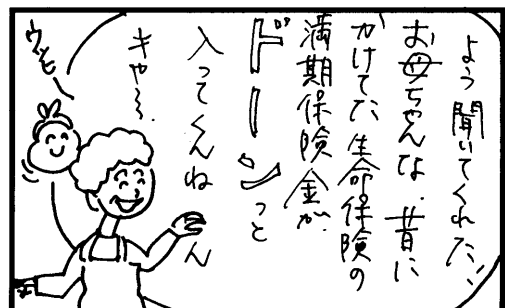 よう聞いてくれた!!
お母ちゃんな、昔に
かけてた生命保険の
満期保険金が、
ドーンっと
入ってくんねん
キャ〜。